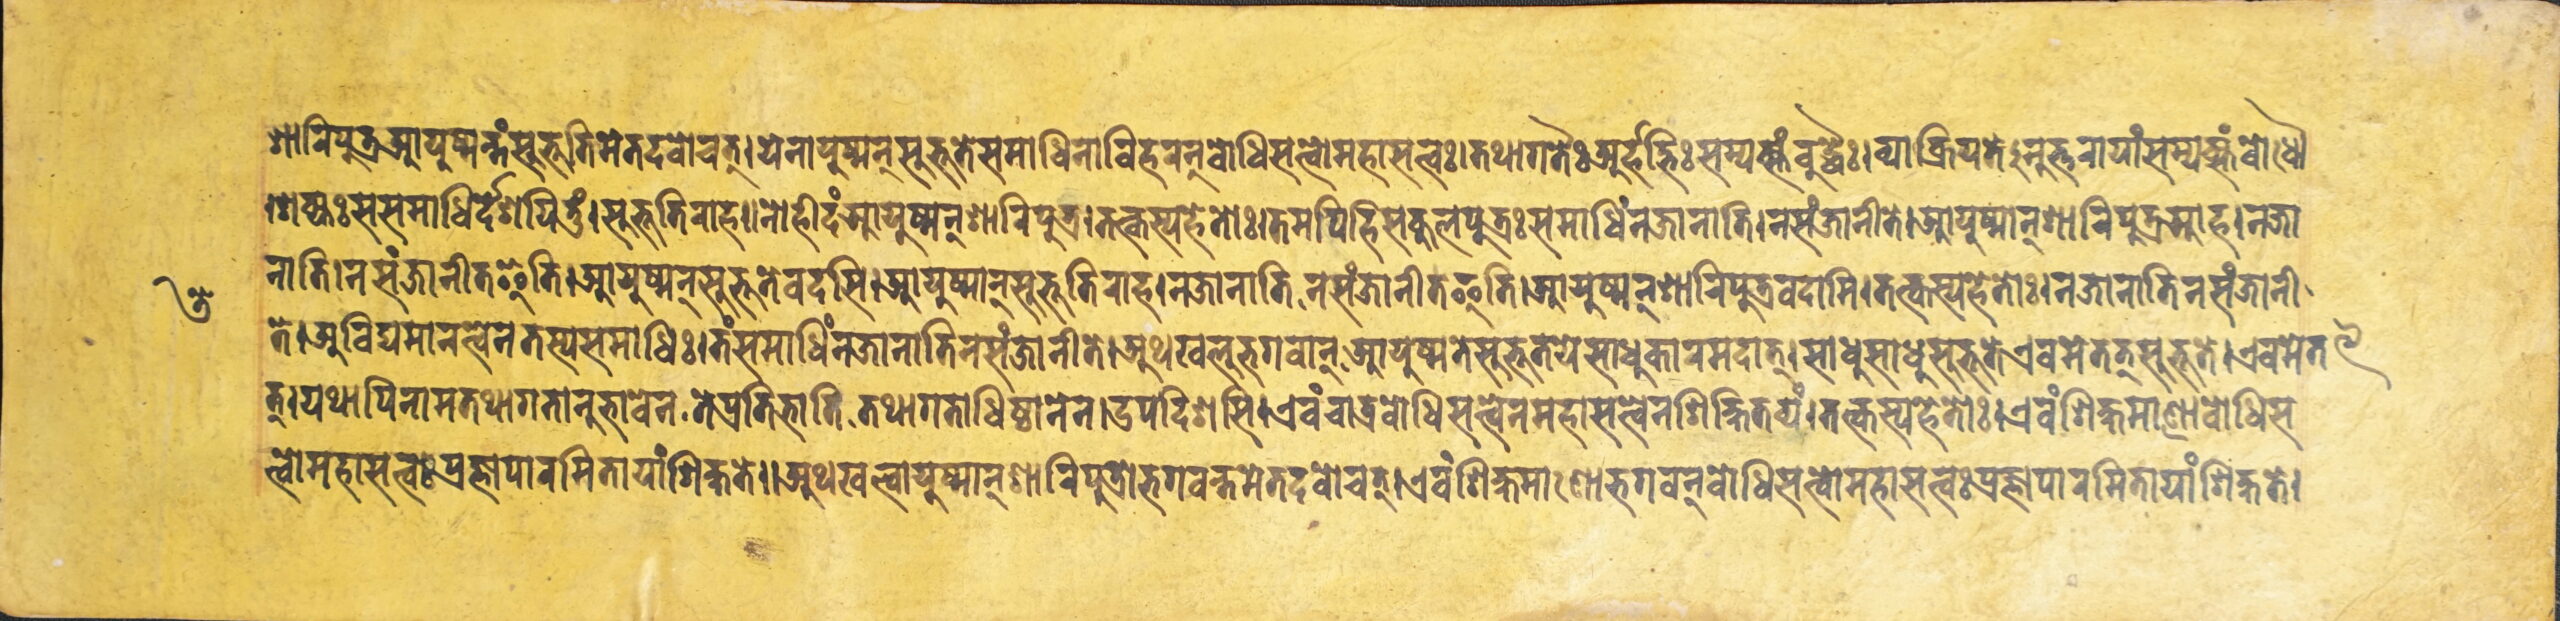 शारिपुत्र आयुष्मन्तं सुभूतिमेतदवोचत्। येनायुष्मन् सुभूते समाधिना विहरन् बोधिसत्त्वो महासत्त्वः। तथागतैः अर्हद्भिः सम्यक्संबुद्धैः। व्याक्रियते ऽनुत्तरायां सम्यक्संबोधौ
। शक्यः स समाधिर्देशयितुं। सुभूतिराह॥ नो हीदं आयुष्मन् शारिपुत्र। तत्कस्य हेतोः। तमपि हि स कुलपुत्रः समाधिं न जानाति। न संजानीते। आयुष्मान् शारिपुत्र आह। न जा
नाति। न संजानीत इति। आयुष्मन् सुभूते वदसि। आयुष्मान् सुभूतिराह। न जानाति न संजानीत इति। आयुष्मन् शारिपुत्र वदामि। तत्कस्य हेतोः। न जानाति न संजानी
ते। अविद्यमानत्वेन तस्य समाधिः। तं समाधिं न जानाति न संजानीते। अथ खलु भगवान् आयुष्मते सुभूतये साधुकारमदात्। साधु साधु सुभूते एवमेतत् सुभूते। एवमेत
त्। यथापि नाम तथागतानुभावेन ते प्रतिभाति तथागताधिष्ठानेन। उपदिशसि। एवं चात्र बोधिसत्त्वेन महासत्त्वेन शिक्षितव्यं। तत्कस्य हेतोः। एवं शिक्षमाणो बोधिस
त्त्वो महासत्त्वः प्रज्ञापारमितायां शिक्षते॥ अथ खल्वायुष्मान् शारिपुत्रो भगवन्तमेतदवोचत्। एवं शिक्षमाणो भगवन् बोधिसत्त्वो महासत्त्वः प्रज्ञापारमितायां शिक्षते।